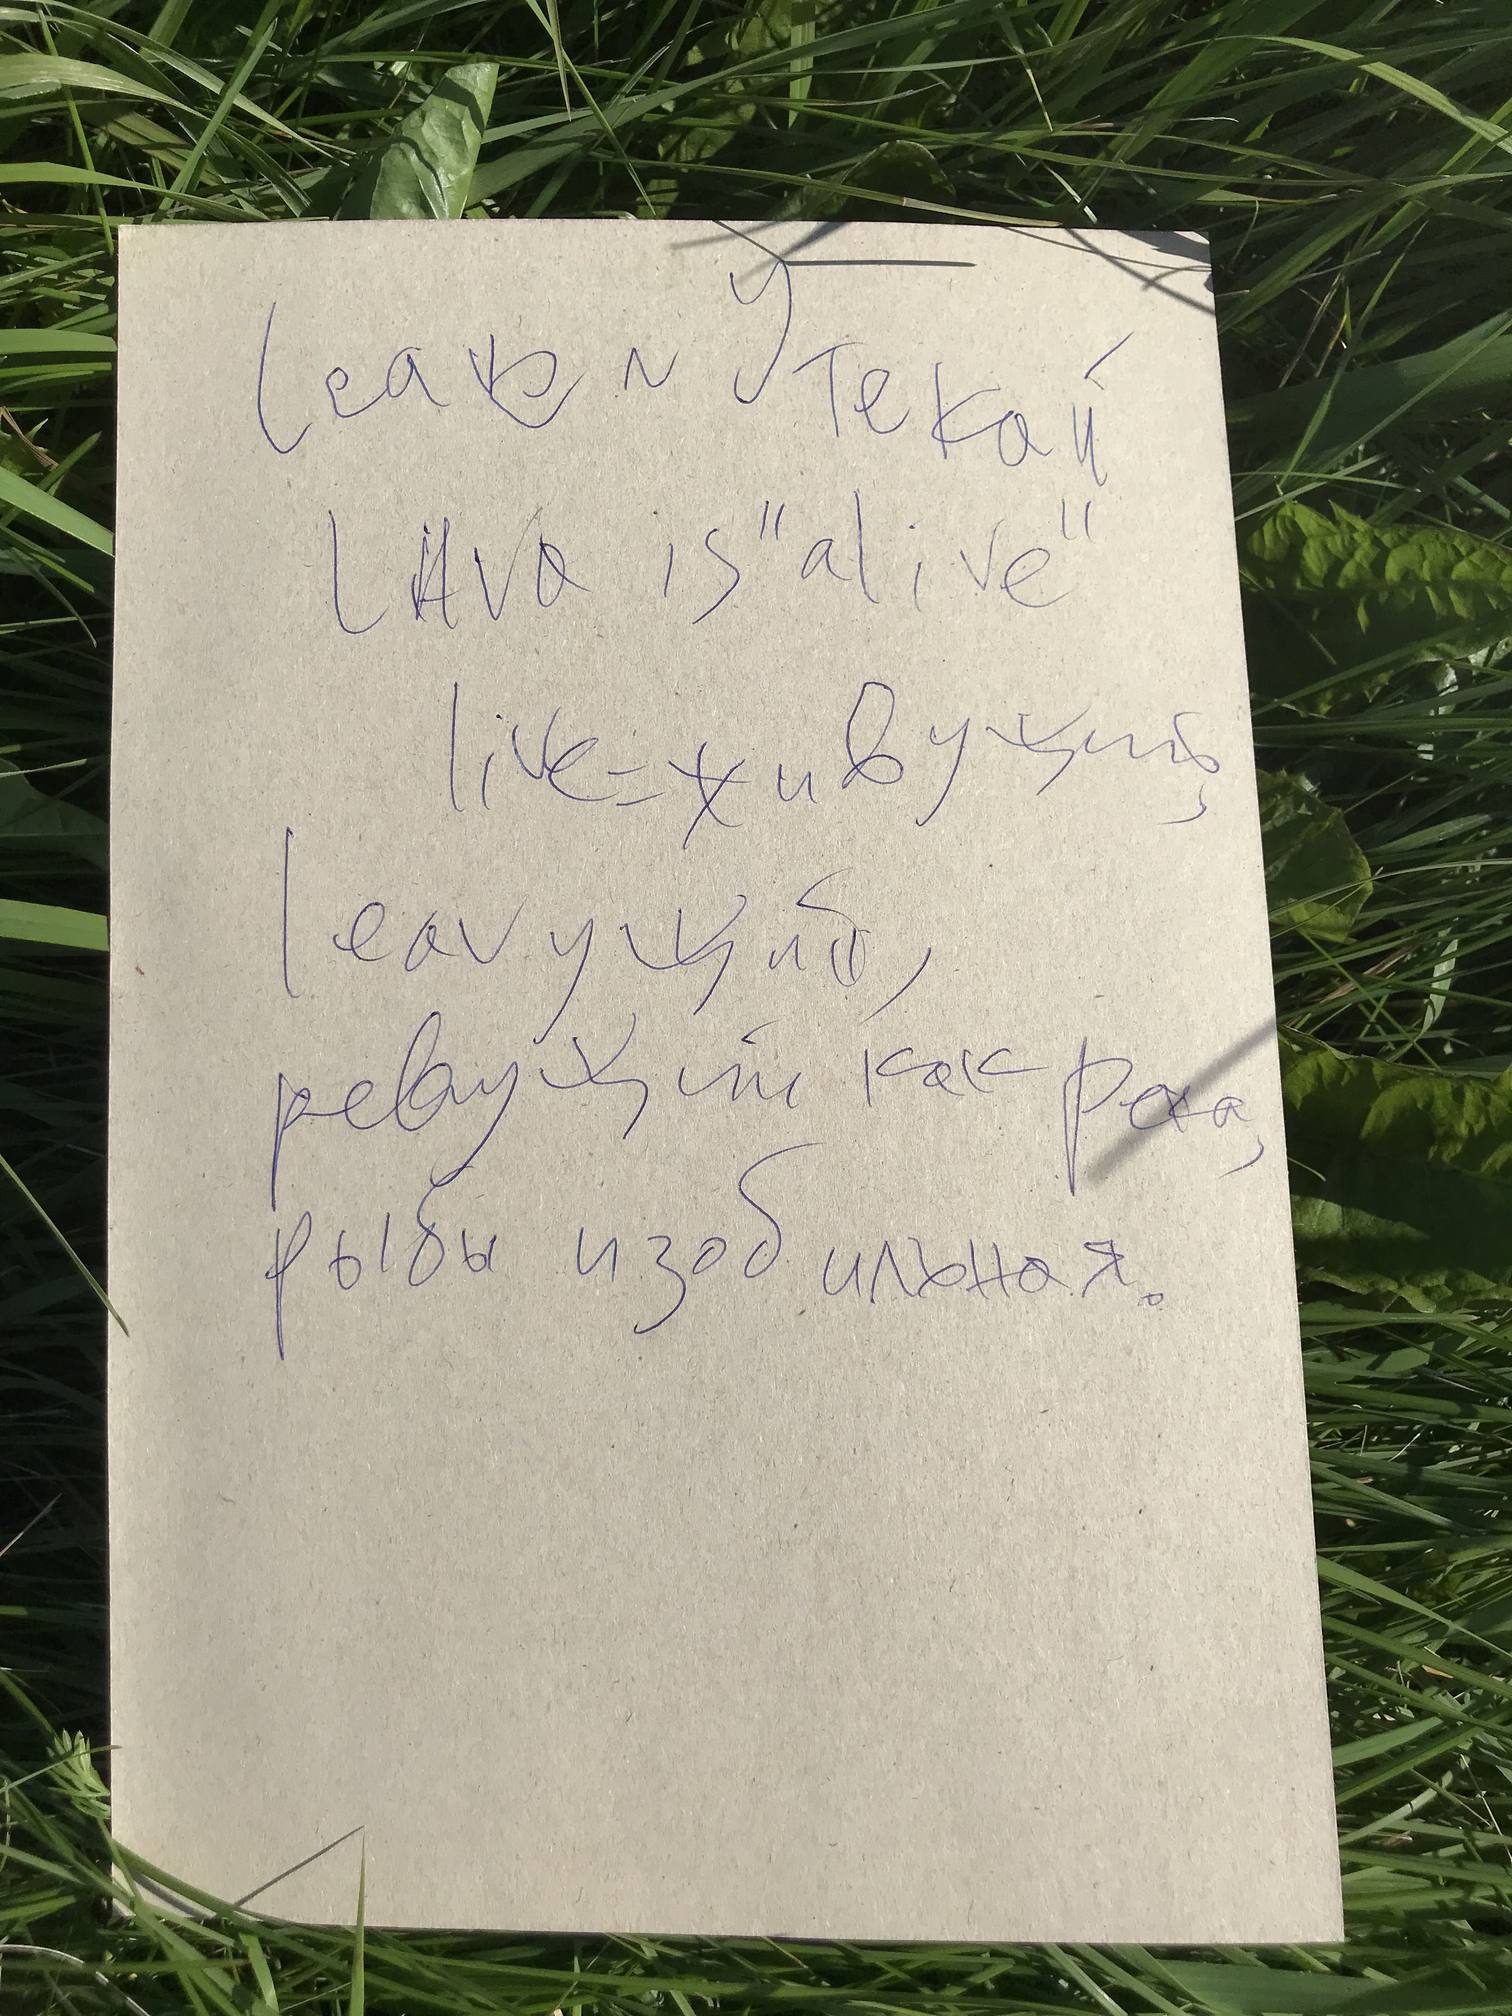 leaв и утекай
LAva is "alive"
live=живущий,
leavущий,
ревущий как река,
рыбы изобильная.